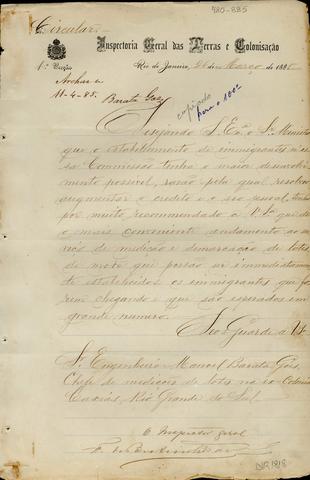 980-885
Circular.
Inspectoria Geral das Terras e Colonisação
1ª Secção
Rio de Janeiro, de Março de 188
Archive-se
11-4-85.
Barata Goes
copiado
para o
Desejando S. Exª o Sr. Ministro
que o estabelecimento de immigrantes n'es-
sa Commissão tenha o maior desenvolvi-
mento possivel, razão pela qual resolveu
augmentar o credito e o seu pessoal, tenho
por muito recommendado a Vª Sª que dê
o mais conveniente andamento ao ser-
viço de medição e demarcação de lotes,
de modo que possão ser immediatamen-
te estabelecidos os immigrantes que fo-
rem chegando e que são esperados em
grande numero.
Deos Guarde a Vª Sª
Sr. Engenheiro Manoel Barata Góes,
Chefe de medições de lotes na ex Colonia
Caxias, Rio Grande do Sul.
O Inspector geral